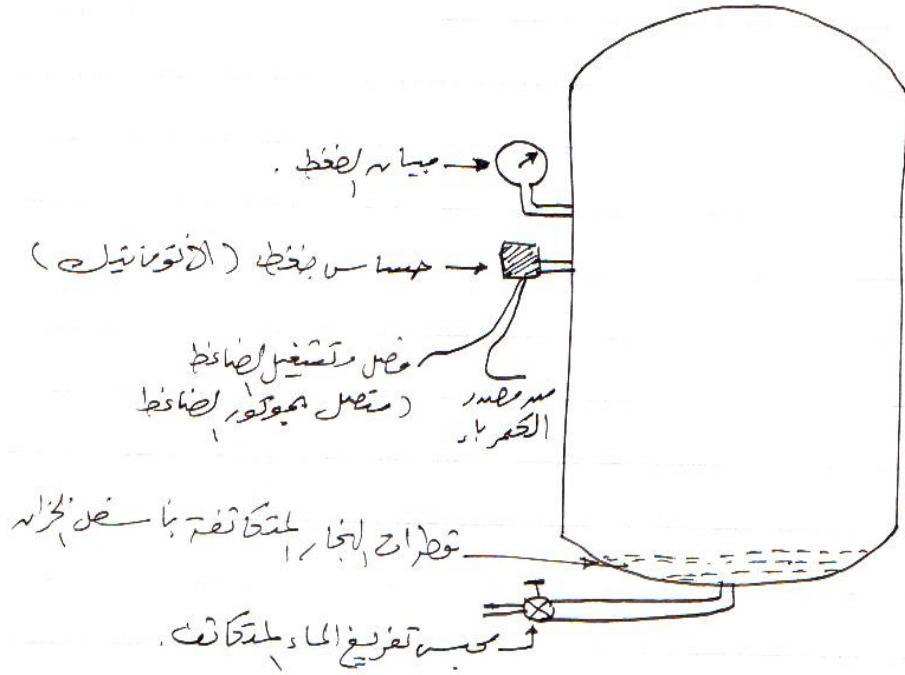 مبيان الضغط .
حساس ضغط (الأتوماتيك)
فصل وتشغيل الضاغط
(متصل بموتور الضاغط
من مصدر
الكهرباء
قطرات البخار المتكاثفة بأسفل الخزان
محبس تفريغ الماء المتكاثف .